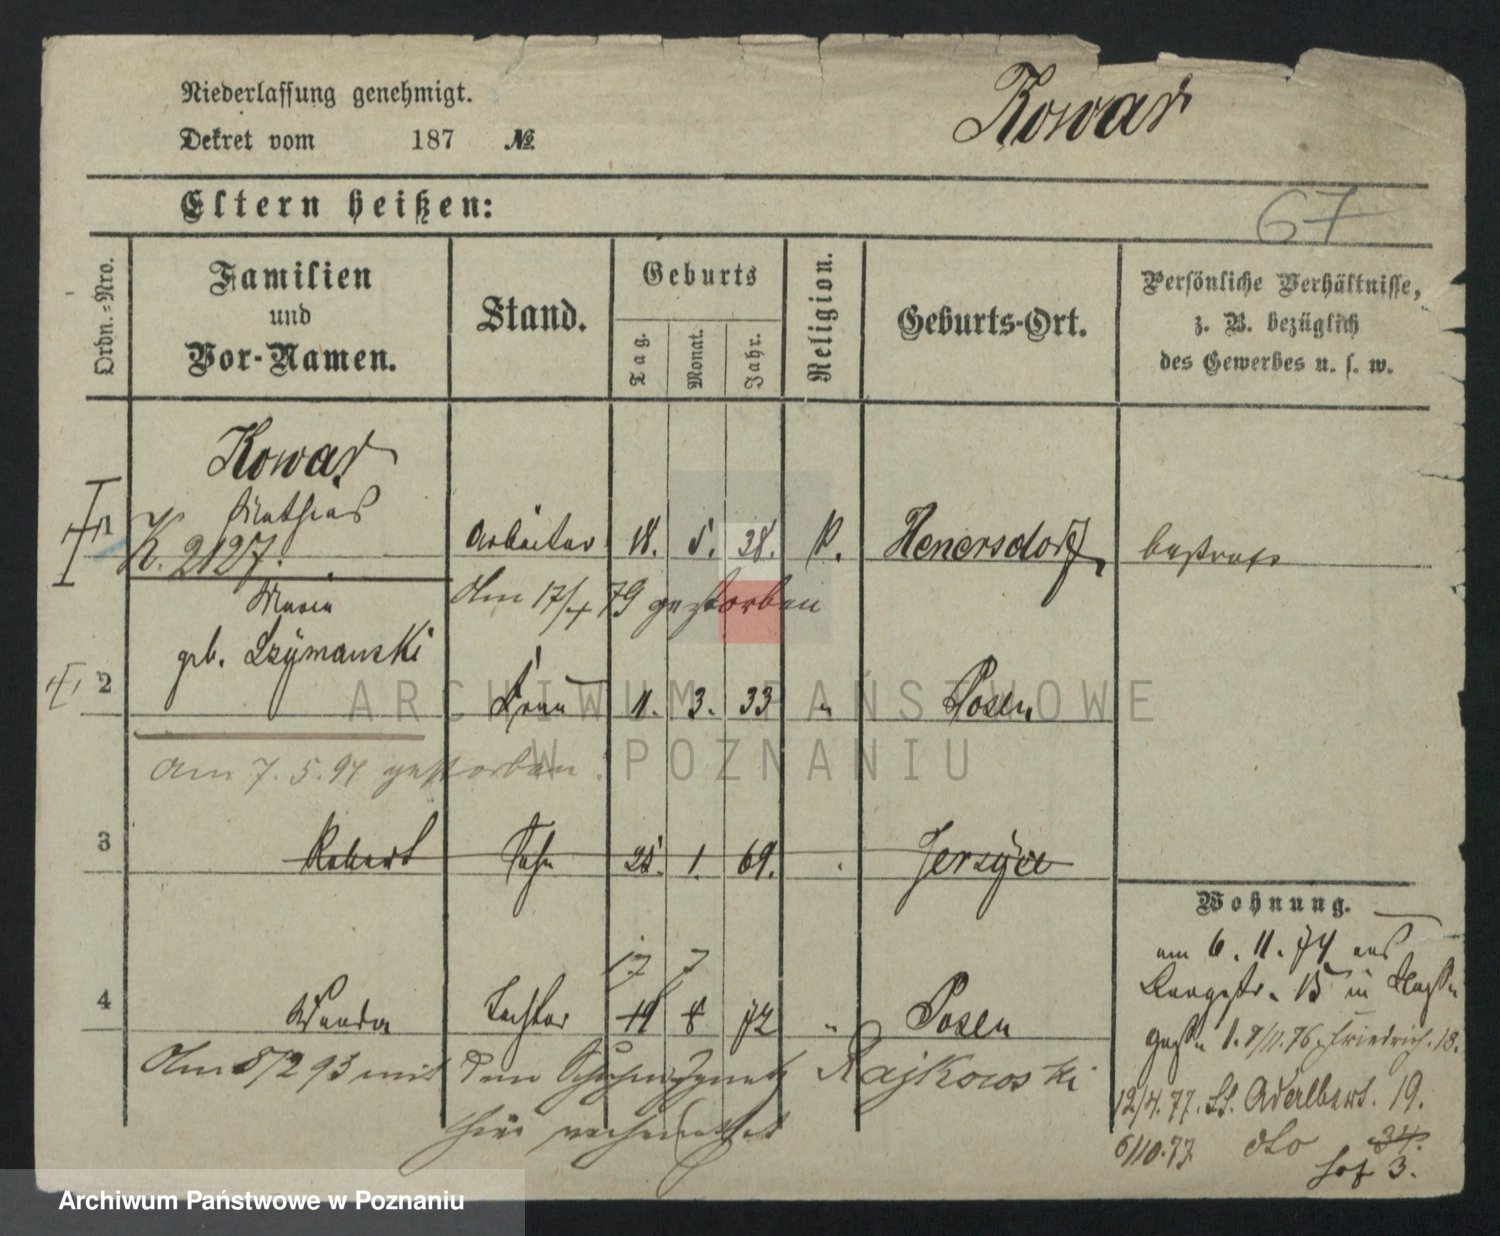 Niederlassung genehmigt.
Dekret vom 187 №
Kowar
Eltern heißen:
67
Ordn.=Nro.
Familien
und
Vor-Namen.
Stand.
Geburts
Tag.
Monat.
Jahr.
Religion.
Geburts-Ort.
Persönliche Verhältnisse,
z. B. bezüglich
des Gewerbes u. s. w.
Kowar
Mathias
1 Arbeiter 18. 5. 38. K. Henersdorf, bestraft
K. 2127.
Am 17/4 79 gestorben
Maria
geb. Szymanski
2 Frau 11. 3. 33 " Posen
am 7. 5. 94 gestorben.
3 Robert Sohn 25. 1. 69. Jersyce
17 7
4 Wanda Tochter 19 8 72 " Posen
Am 8/2 93 mit dem Rajkowski
hier verheirathet
Wohnung.
am 6. 11. 74 aus
15 in
1. 7/11. 76. Friedrich. 18.
12/4. 77. St. Adalbert. 19.
6/10. 77. dto 34.
Hof 3.
ARCHIWUM PAŃSTWOWE
W POZNANIU
Archiwum Państwowe w Poznaniu